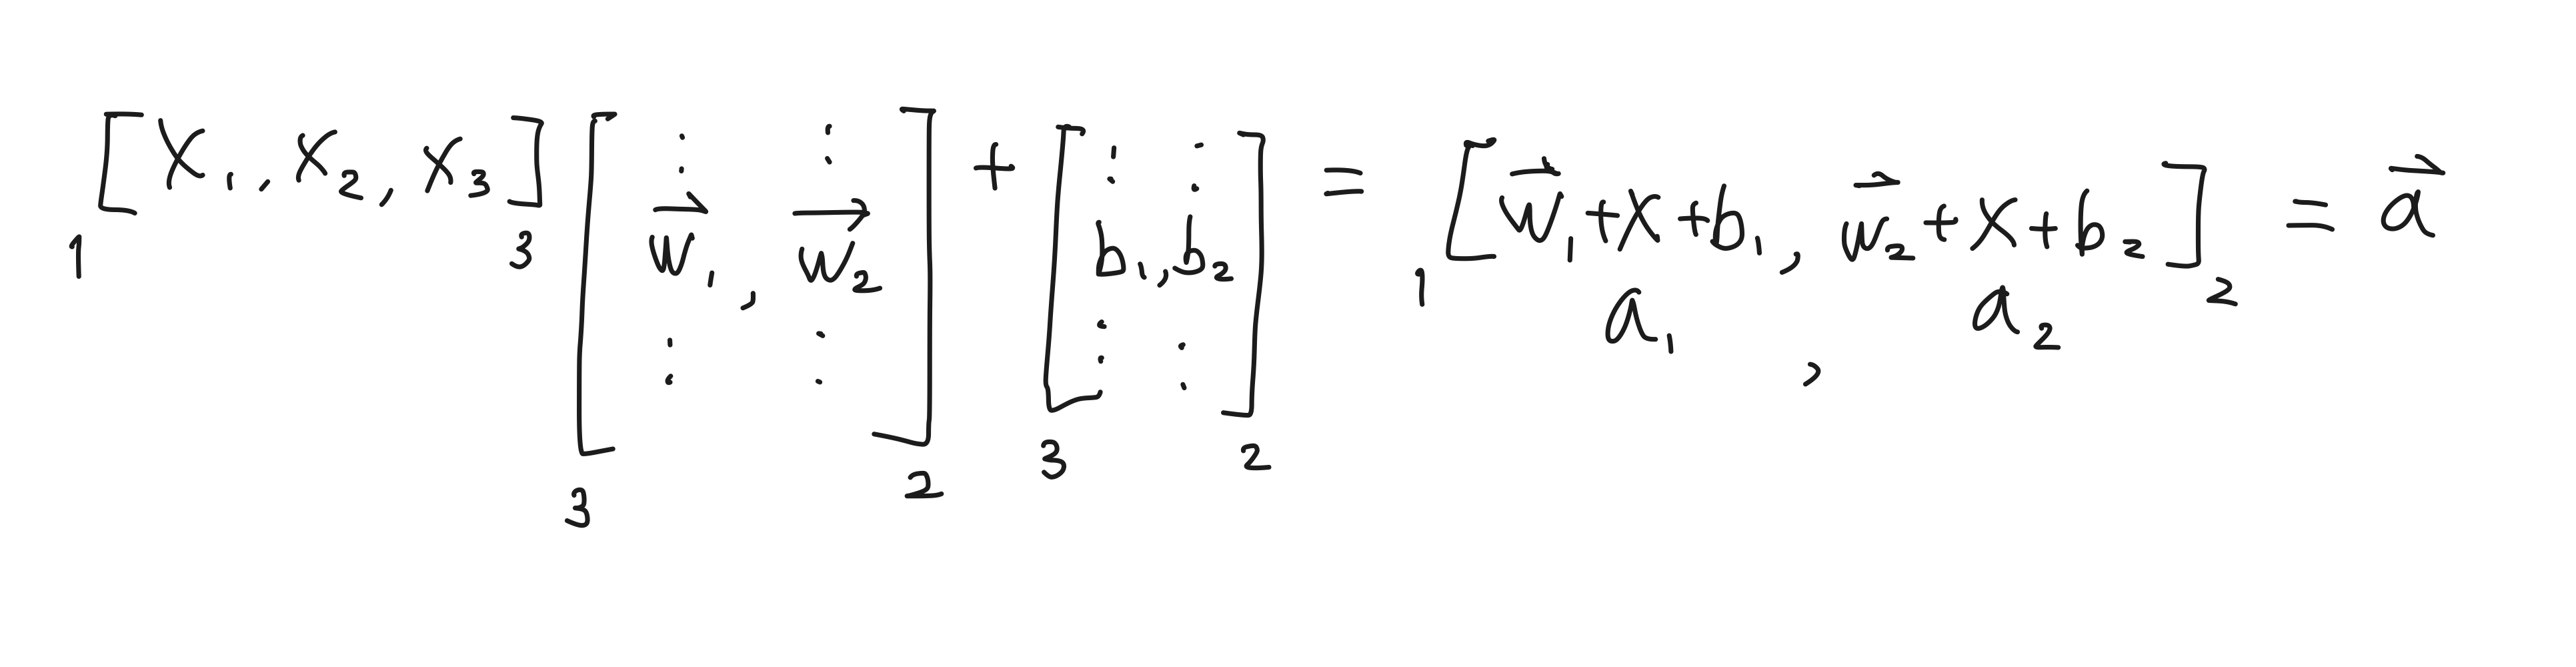 ₁[x₁, x₂, x₃]₃ ₃[w⃗₁, w⃗₂]₂ + ₃[b₁, b₂]₂ = ₁[w⃗₁+x+b₁, w⃗₂+x+b₂]₂ = a⃗
a₁, a₂